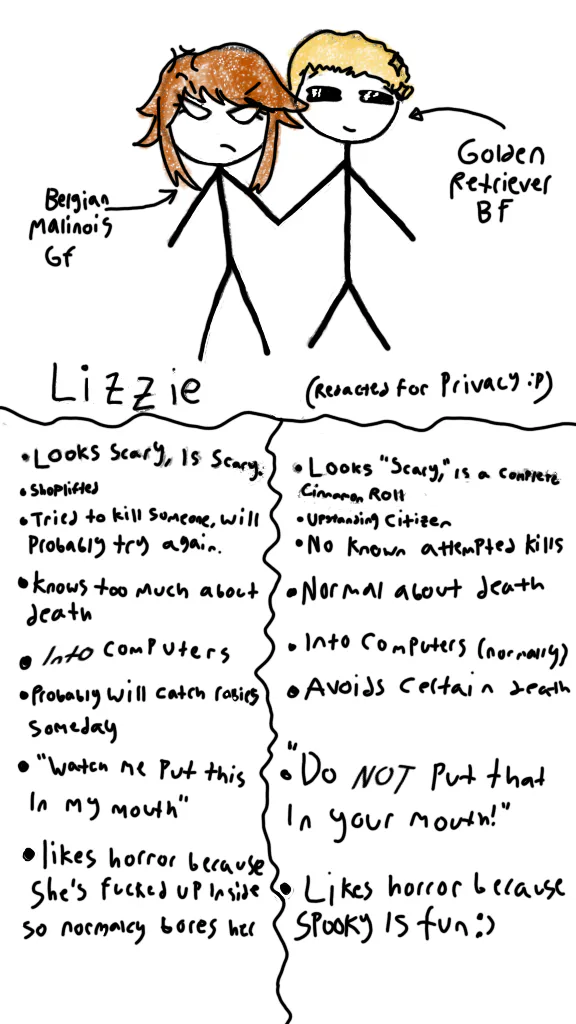 Golden
Retriever
BF
Belgian
Malinois
Gf
Lizzie
(Redacted for Privacy :P)
•Looks Scary, Is Scary.
•Shoplifted
•Tried to kill Someone, will
Probably try again.
•knows too much about
death
•Into Computers
•Probably Will Catch rabies
Someday
•"Watch me Put this
In my mouth"
•likes horror because
She's fucked up Inside
so normalcy bores her
•Looks "Scary," is a complete
Cinnamon Roll
•Upstanding Citizen
•No known attempted kills
•Normal about death
•Into Computers (normally)
•Avoids Certain death
•"Do NOT Put that
In your mouth!"
•Likes horror because
SPOOKY IS fun :)